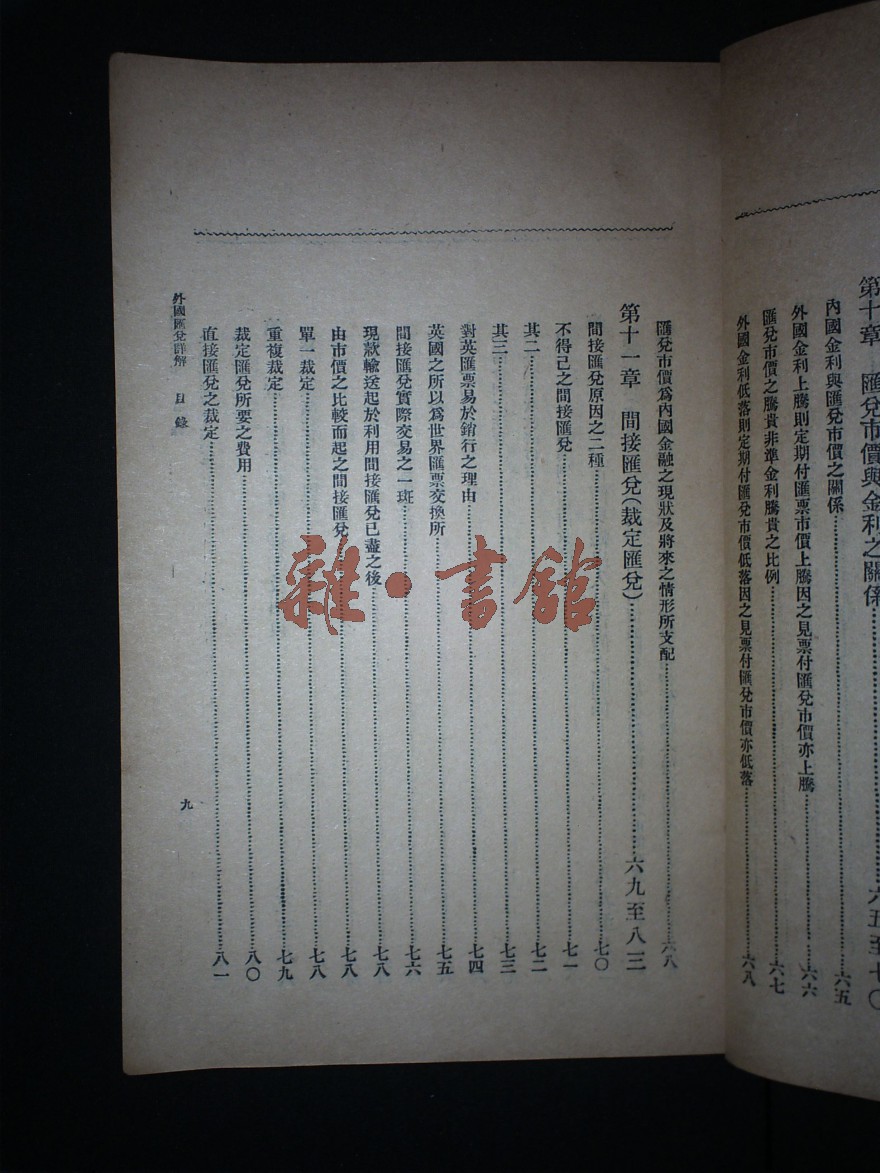 第十章　匯兌市價與金利之關係……六五至七〇
內國金利與匯兌市價之關係……六五
外國金利上騰則定期付匯票市價上騰因之見票付匯兌市價亦上騰……六六
匯兌市價之騰貴非準金利騰貴之比例……六七
外國金利低落則定期付匯兌市價低落因之見票付匯兌市價亦低落……六八
匯兌市價爲內國金融之現狀及將來之情形所支配……六八
第十一章　間接匯兌(裁定匯兌)……六九至八三
間接匯兌原因之二種……七〇
不得已之間接匯兌……七一
其二……七二
其三……七三
對英匯票易於銷行之理由……七四
英國之所以爲世界匯票交換所……七五
間接匯兌實際交易之一班……七六
現款輸送起於利用間接匯兌已盡之後……七八
由市價之比較而起之間接匯兌……七八
單一裁定……七八
重複裁定……七九
裁定匯兌所要之費用……八〇
直接匯兌之裁定……八一
外國匯兌詳解　目錄
九
雜·書館